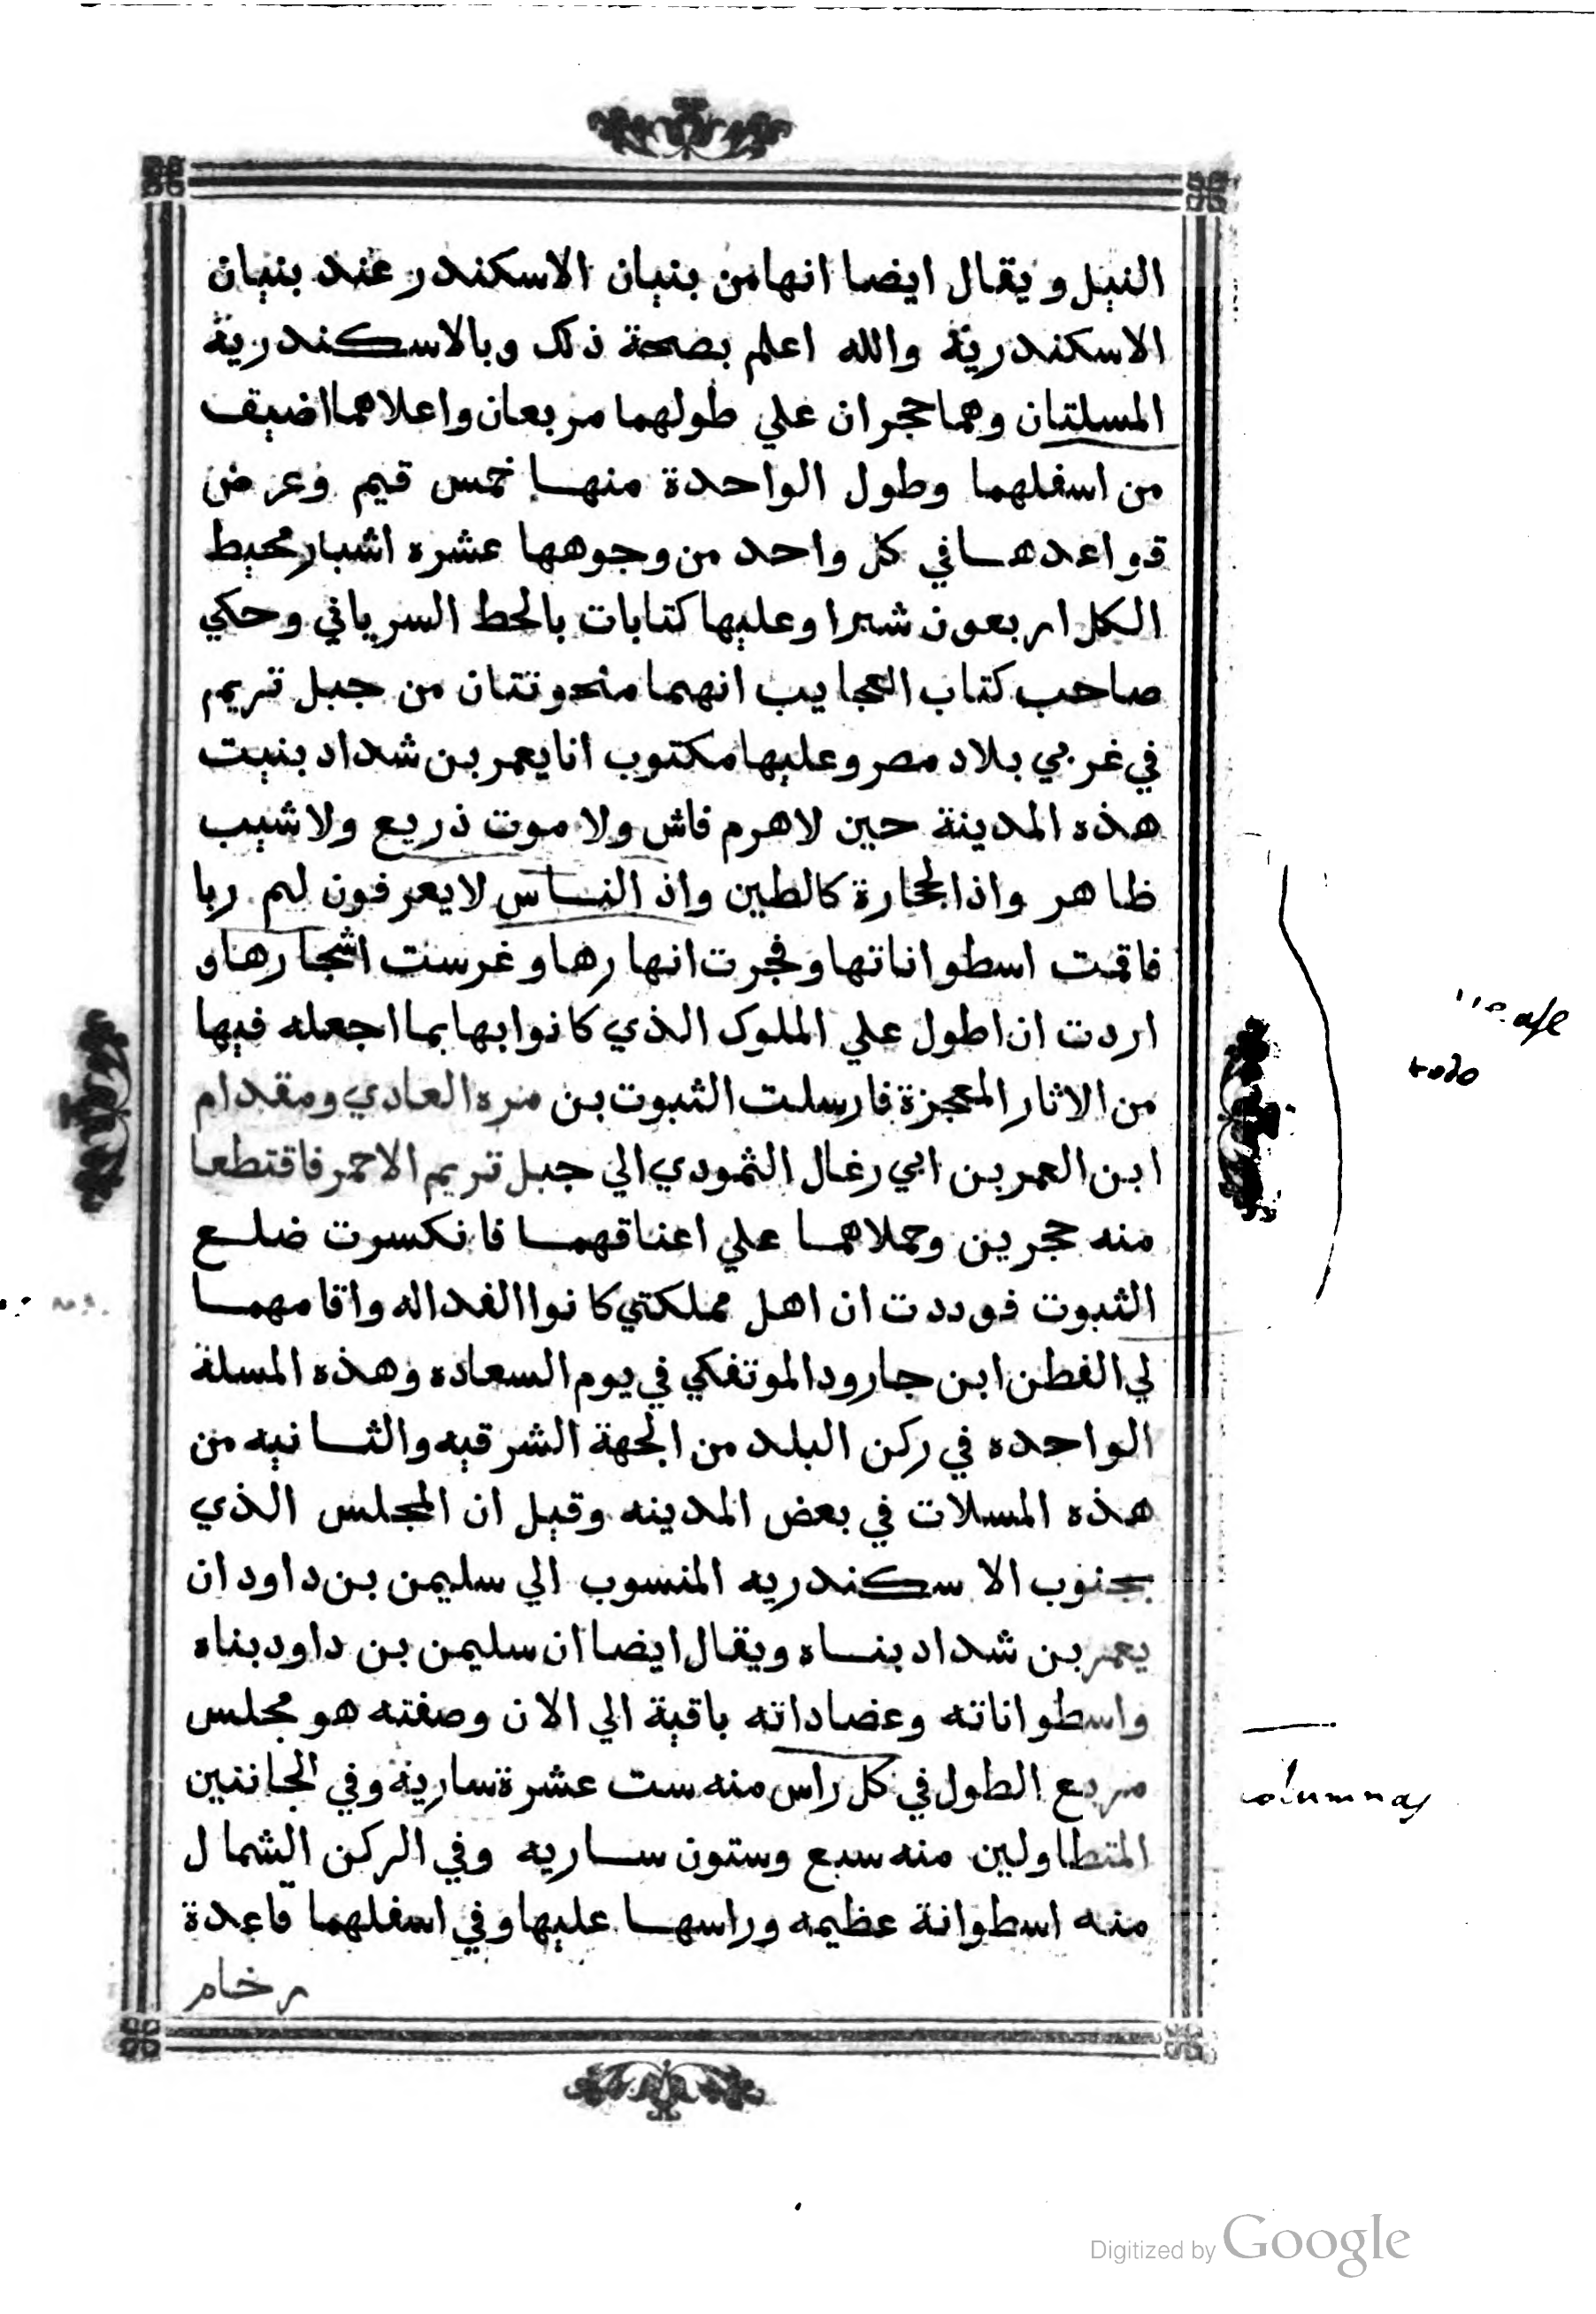 النيل ويقال ايضا انها من بنيان الاسكندر عند بنيان
الاسكندرية والله اعلم بصحة ذلك وبالاسكندرية
المسلتان وهما حجران علي طولهما مربعان واعلاهما اضيق
من اسفلهما وطول الواحدة منها خمس قيم وعرض
قواعدها في كل واحد من وجوهها عشره اشبار محيط
الكل اربعون شبرا وعليها كتابات بالحط السرياني وحكي
صاحب كتاب العجايب انهما منحوتتان من جبل تريم
في غربي بلاد مصر وعليها مكتوب انا يعمر بن شداد بنيت
هذه المدينة حين لا هرم فاش ولا موت ذريع ولا شيب
ظاهر واذ الحجارة كالطين واذ الناس لا يعرفون لهم ربا
فاقمت اسطواناتها وفجرت انهارها وغرست اشجارها و
اردت ان اطول علي الملوك الذي كانوا بها بما اجعله فيها
من الاثار المعجزة فارسلت الثبوت بن مره العادي ومقدام
ابن العمر بن ابي رغال الثمودي الي جبل تريم الاحمر فاقتطعا
منه حجرين وحملاهما علي اعناقهما فانكسرت ضلع
الثبوت فوددت ان اهل مملكتي كانوا الفدا له واقامهما
لي الفطن ابن جارود الموتفكي في يوم السعاده وهذه المسلة
الواحده في ركن البلد من الجهة الشرقيه والثانيه من
هذه المسلات في بعض المدينه وقيل ان المجلس الذي
بجنوب الاسكندريه المنسوب الي سليمن بن داود ان
يعمر بن شداد بناه ويقال ايضا ان سليمن بن داود بناه
واسطواناته وعضاداته باقية الي الان وصفته هو مجلس
مربع الطول في كل راس منه ست عشرة سارية وفي الجاننين
المتطاولين منه سبع وستون ساريه وفي الركن الشمال
منه اسطوانة عظيمه وراسها عليها وفي اسفلهما قاعدة
رخام
todo
columnas
Digitized by Google